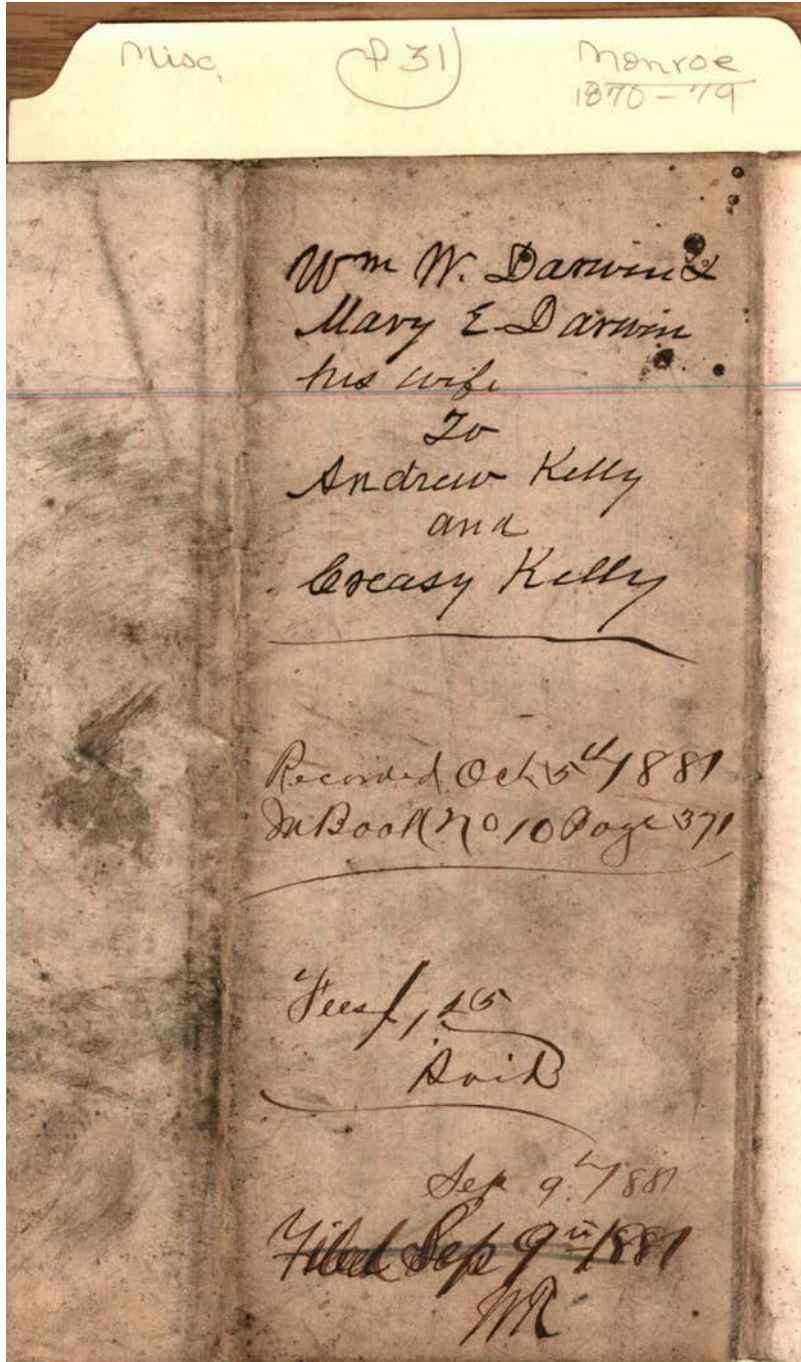 Misc, P 31 Monroe
1870-79
Wm W. Darwin &
Mary E. Darwin
his wife
To
Andrew Kelly
and
Creasy Kelly
Recorded Oct 5th 1881
In Book No 10 Page 371
Fees
Paid
Sep 9th 1881
Filed Sep 9th 1881